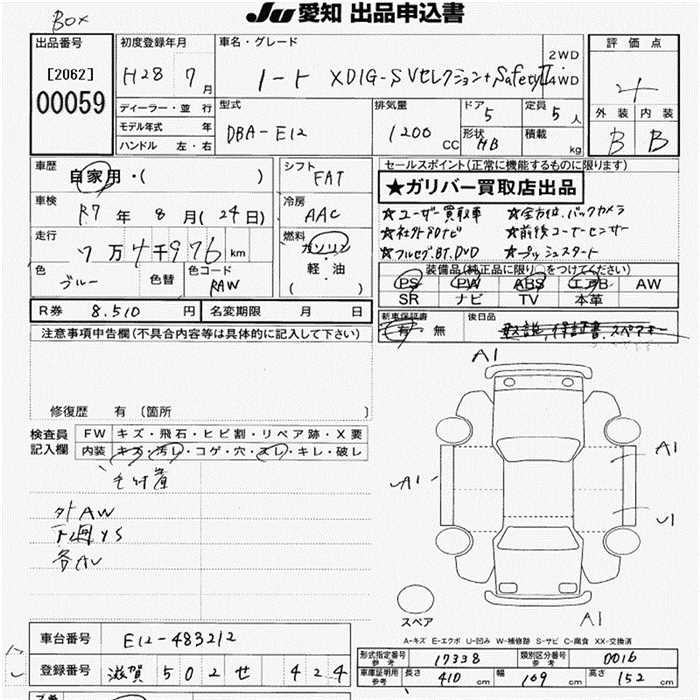 BOX
Ju 愛知 出品申込書
出品番号
[2062]
00059
初度登録年月
H28 7月
ディーラー・並 行
モデル年式 年
ハンドル 左・右
車名・グレード
ノート XDIG-S Vセレクション+SafetyII
2WD
4WD
型式
DBA-E12
排気量
1200 CC
ドア
5
形状
HB
定員
5 人
積載
kg
評価点
4
外装 内装
B B
車歴
自家用・( )
車検
R7 年 8 月(24日)
走行
7万4千976 km
色
ブルー
色替
色コード
RAW
シフト
FAT
冷房
AAC
燃料
ガソリン
軽・油
( )
R券 8.510 円
名変期限 月 日
セールスポイント(正常に機能するものに限ります)
★ガリバー買取店出品
☆ユーザー買取車 ☆全方位バックカメラ
☆ネクストDナビ ☆前後コーナーセンサー
☆フルセグ.BT.DVD ☆プッシュスタート
装備品(純正品に限り○をつけてください)
PS PW ABS エアB AW
SR ナビ TV 本革
新車保証書
有・無
後日品
取説、保証書、スペアキー
注意事項申告欄(不具合内容等は具体的に記入して下さい)
修復歴 有 〔箇所 〕
検査員
記入欄
FW キズ・飛石・ヒビ割・リペア跡・X要
内装 キズ・汚レ・コゲ・穴・スレ・キレ・破レ
外AW
下廻YS
各AU
A1
A1
A1
U1
A1
スペア
A-キズ E-エクボ U-凹み W-補修跡 S-サビ C-腐食 XX-交換済
車台番号 E12-483212
登録番号 滋賀 502 せ 424
形式指定番号
参考
17338
類別区分番号
参考
0016
車庫証明用
参考
長さ 410 cm 幅 169 cm 高さ 152 cm